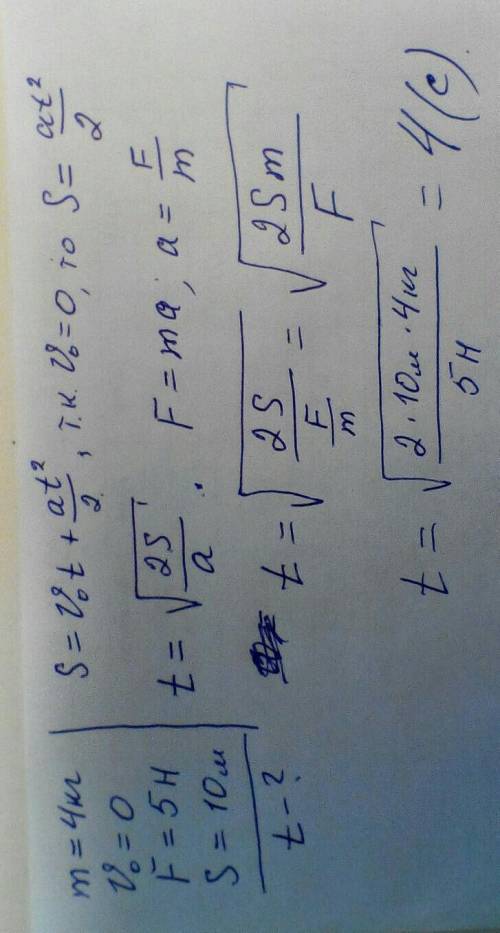 m = 4кг
v₀ = 0
F = 5Н
S = 10м
t - ?
S = v₀t + at²/2, т.к. v₀ = 0, то S = at²/2
t = √(2S/a). F = ma; a = F/m
t = √(2S/(F/m)) = √(2Sm/F)
t = √(2·10м·4кг/5Н) = 4(с)